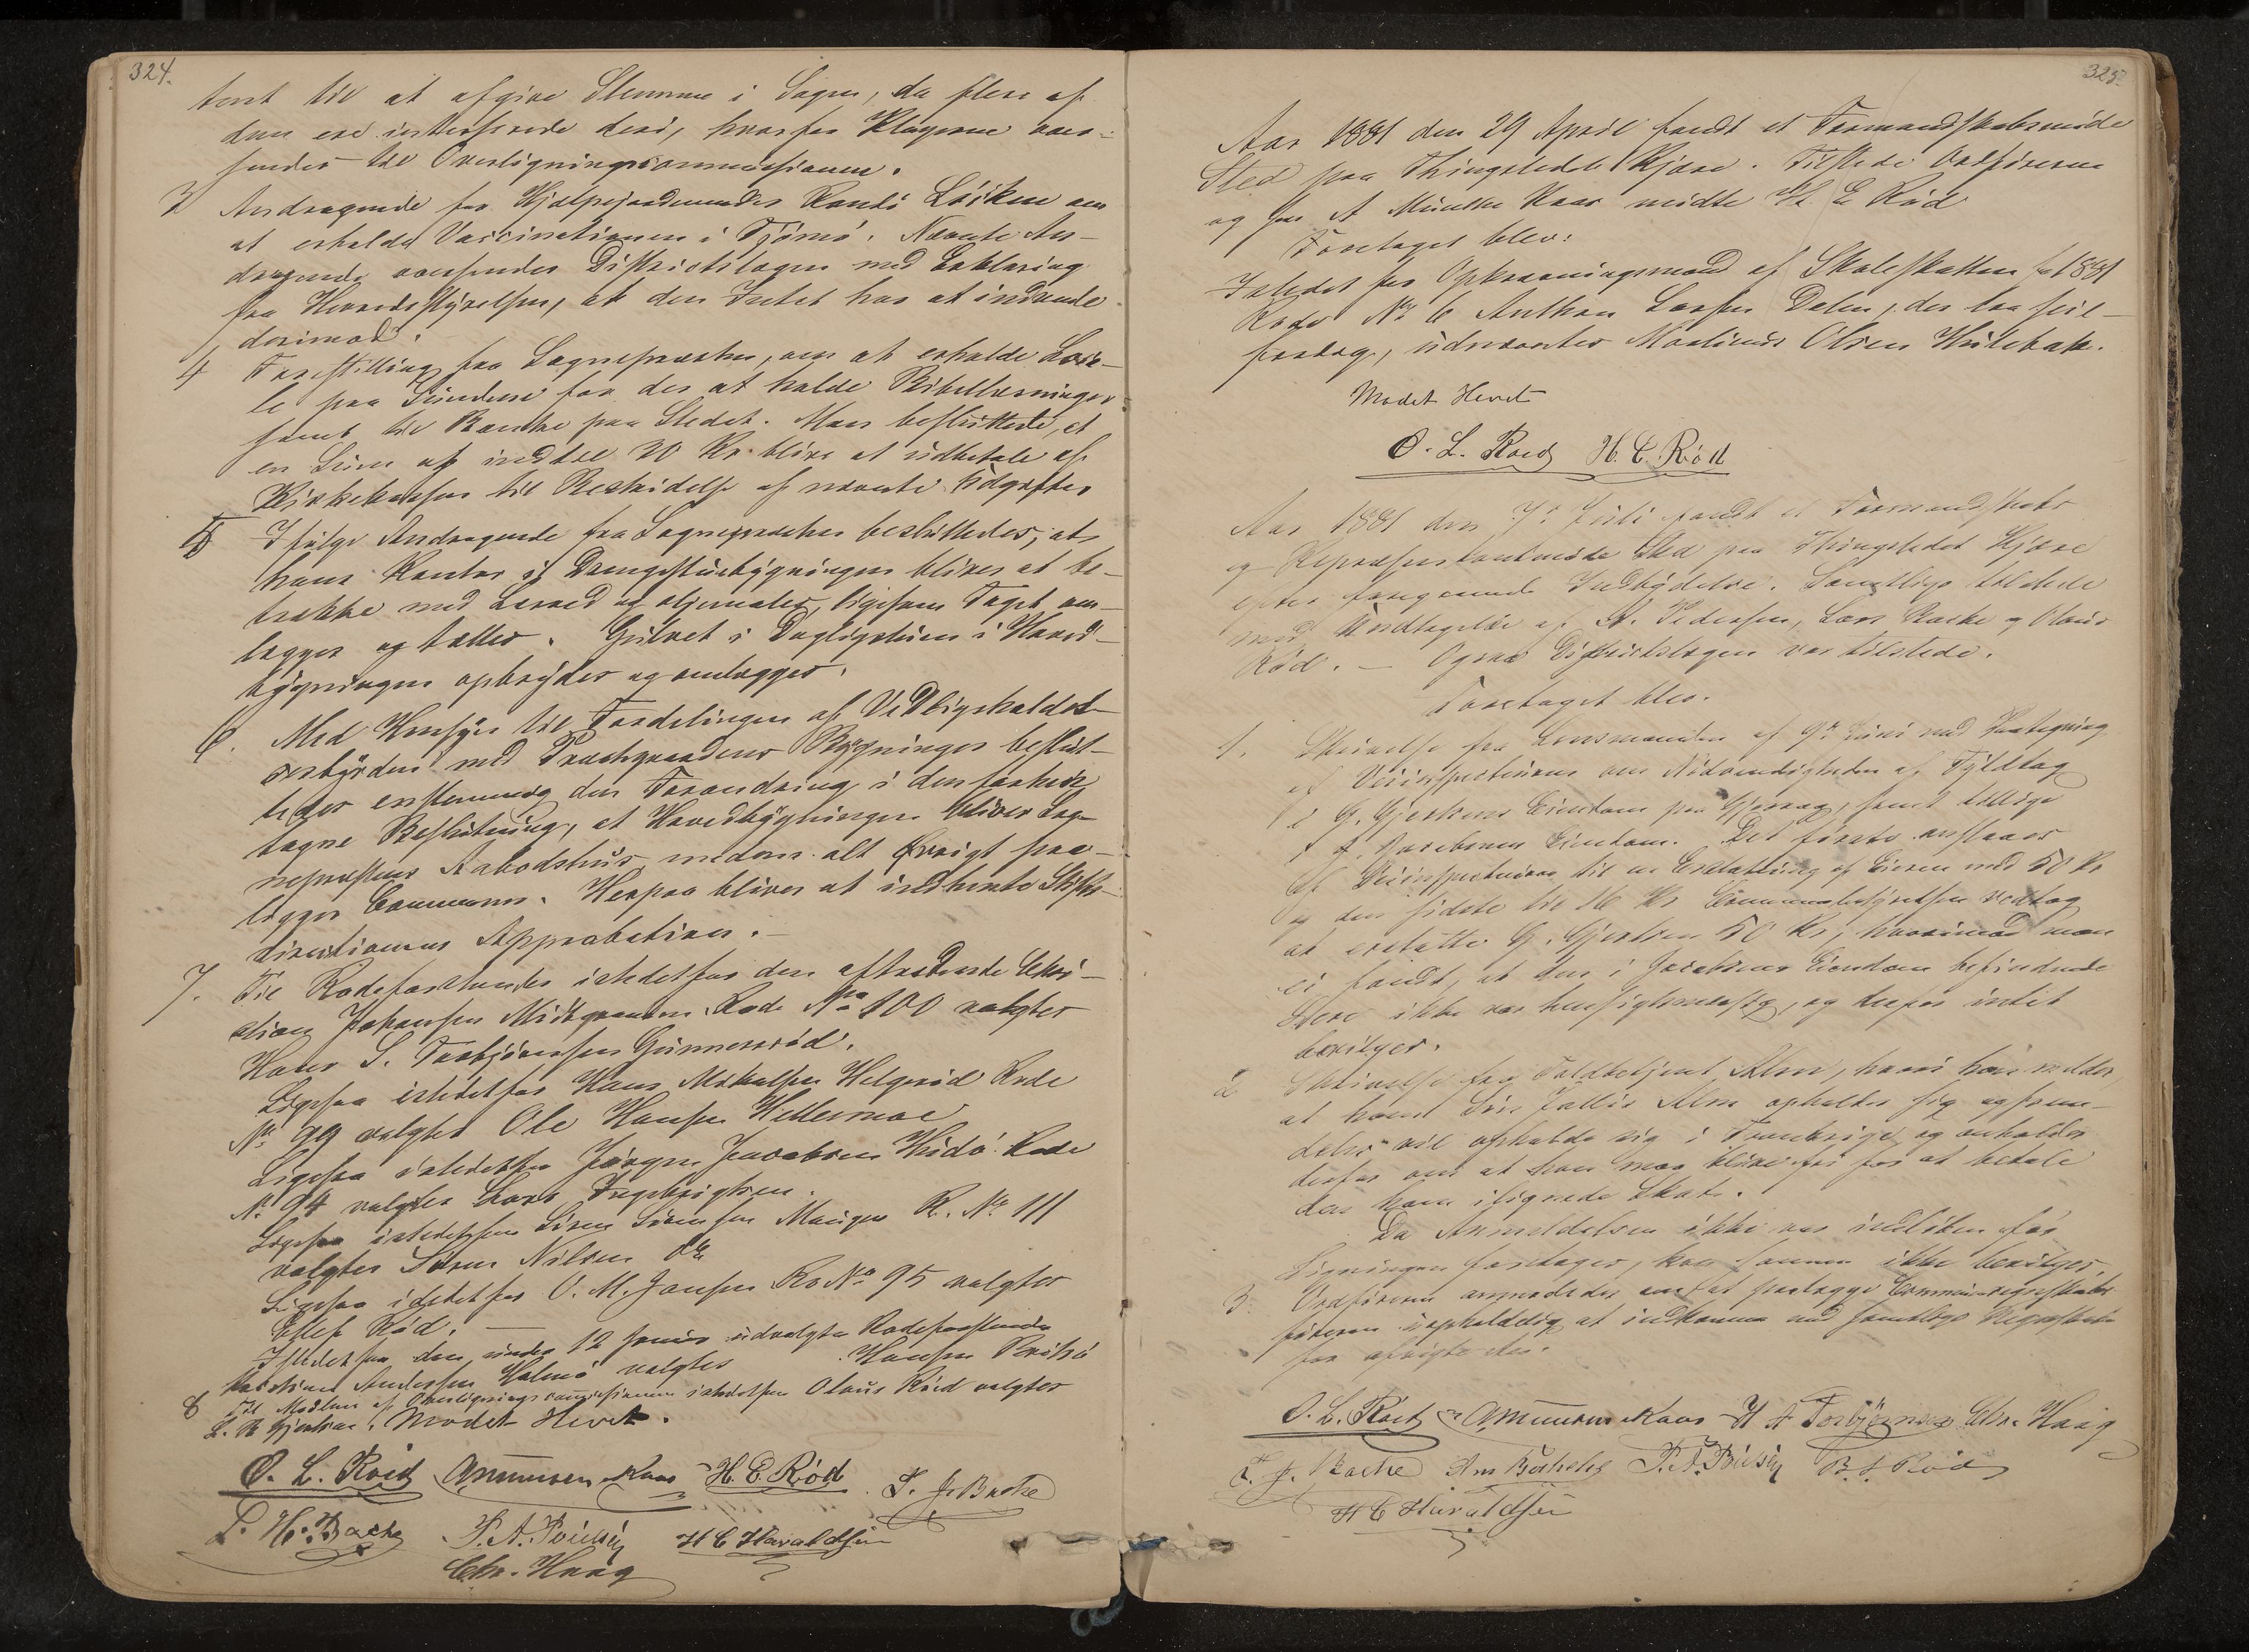 324.
tent til at afgive Stemme i Sagen, da flere af
dem ere interesserede deri, hvorfor Klagerne over-
sendes til Overligningscommissionen.
3 Andragende fra Hjælpejordemoder Løiken om
at erholde Vaccinationen i Tjømø. Nævnte An-
dragende oversendes Distriktslægen med Erklæring
fra Herredsstyrelsen, at den Intet har at indvende
derimod.
4 Forestilling fra Sognepræsten, om at erholde Loca-
le paa for der at holde Bibellæsninger
samt til Bænke paa Stedet. Man besluttede, at
en Sum af indtil 20 Kr bliver at udbetale af
Kirkekassen til Bestridelse af nævnte Udgifter
5 Ifølge Andragende fra Sognepræsten besluttedes, at
hans Kontor i Drengestuebygningen bliver at be-
trække med Lærred og oljemales, ligesom Taget om-
lægges og tættes. Gulvet i Dagligstuen i Hoved-
bygningen opbrydes og omlægges.
6. Med Hensyn til Fordelingen af Vedligeholdel-
sesbyrden med Præstegaardens Bygninger beslut-
tedes enstemmig den Forandring i den forhen
tagne Beslutning, at Hovedbygningen bliver Sog-
nepræstens Aabodshus, medens alt Øvrigt paa-
ligger Communen. Herpaa bliver at indhente Stifts-
directionens Approbation.
7. Til Rodeforstander istedetfor den aftrædende Chri-
stian Johansen Rode No 100 valgtes
Hans S. Torbjørnsen Gunnersrød.
Ligesaa istedetfor Hans Mikalsen Helgerød Rode
No 99 valgtes Ole Hansen
Ligesaa istedetfor Jørgen Jacobsen Hvidø Rode
No 94 valgtes Lars Ingebrigtsen.
Ligesaa istedetfor Søren Sørensen Maugen R. No 111
valgtes Søren Nilsen do
Ligesaa istedetfor O. M. Jansen Ro No 95 valgtes
Ellef Rød.
Istedetfor den under 12 udvalgte Rodeforstander
Andersen Holmø valgtes Hansen
8 Til Medlem af Overligningscommissionen istedetfor Olaus Rød valgtes
L. H. Mødet Hevet.
O. L. Røed Amunsen Kaas H. E. Rød T. J. Bache
L. H. Bache P. A. H C Haraldsen
Chr. Haag
325.
Aar 1881 den 29 April holdt et Formandskabsmøde
Sted paa Thingstedet Kjære. Tilstede Ordføreren
og for A Munthe Kaas mødte H. E Rød
Foretaget blev:
Istedet for Opkrævningsmand af Skoleskatten for 1881
Rode No 6 Anthon Larsen Dalen, der
udnævntes Martinus Olsen Hulebak.
Mødet Hevet
O. L. Røed H. E. Rød
Aar 1881 den 7de Juli holdt et Formandskabs
og Repræsentantmøde Sted paa Thingstedet Kjære
efter foregaaende Indbydelse. Samtlige tilstede
med Undtagelse af A. Pedersen, Lars Bache og Olaus
Rød. — Ogsaa Distriktslægen var tilstede.
Foretaget blev.
1. Skrivelse fra Lensmanden af 9de Juni med Paategning
af Veiinspecteuren om Nødvendigheden af Fyldtag
i G. Gjertsens Eiendom paa samt tillige
i J. Jacobsens Eiendom. Det første ansaaes
af Veiinspecteuren til en Erstatning af Eieren med 50 Kr
og den sidste til 16 Kr Communebestyrelsen vedtog
at erstatte G. Gjertsen 50 Kr, hvorimod man
ei fandt, at den i Jacobsens Eiendom befindende
ikke var hensigtsmæssig, og derfor intet
bevilges.
2 Skrivelse fra Toldbetjent Alm, hvori han melder
at hans Søn Alm opholder sig og frem-
deles vil opholde sig i Frankrige, og anholder
derfor om at han maa blive fri for at betale
den ham ilignede Skat.
Da Anmeldelsen ikke var indløben før
Ligningen foretoges, kan samme ikke bevilges
3. Ordføreren anmodedes om at paalægge Communeregnskabs
føreren uopholdelig at indkomme med samtlige Regnskaber
for
O. L. Røed Amunsen Kaas H A Torbjørnsen Chr. Haag
T. J. Bache P. A. B. J. Rød
H C Haraldsen